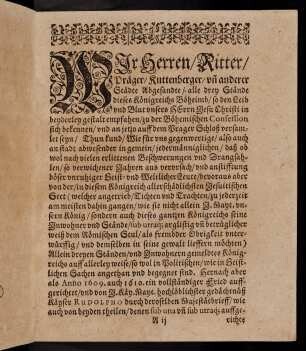 WIr Herren/Ritter/
Präger/Kuttenberger/vñ anderer
Städte Abgesandte/alle drey Stände
dieses Königreichs Böheimb/so den Leib
vnd Blut vnsers HErrn Jesu Christi in
beyderley gestalt empfahen/zu der Böhemischen Confession
sich bekennen/vnd an jetzo auff dem Prager Schloß versam-
let seyn/Thun kund/Wie für vns gegenwertige/also auch
an stadt abwesender in gemein/jedermänniglichen/daß ob
wol nach vielen erlittenen Beschwerungen vnd Drangsah-
len/so verwichener Jahren vns vervrsach/vnd anstifftung
böser vnruhiger Geist- vnd Weltlicher Leut/bevoraus aber
von der/in diesem Königreich allerschädlichsten Jesuitischen
Sect (welcher angerieb/Tichten vnd Trachten/zu jederzeit
am meisten dahin gangen/wie sie nicht allein J. Mayt. vn-
sern König/sondern auch dieses gantzen Königreichs seine
Inwohner vnd Stände/sub utraq; arglistig vñ betrüglicher
weiß dem Römischen Seul/als frembder Obrigkeit vnter-
würffig/vnd demselben in seine gewalt lieffern möchten)
Allein dreyen Ständen/vnd Inwohnern gemeldtes König-
reichs auff allerley weise/so wol in Politischen/wie in Geist-
lichen Sachen angethan vnd begegnet sind. Hernach aber
als Anno 1609. auch 1610. ein vollständiger Fried auff-
gerichtet/vnd von J. Käy. Maye. hochlöblichster gedächtnüß
Käyser RUDOLPHO durch deroselben Majestätbrieff/wie
auch von beyden theilen/denen sub una vñ sub utraq; auffge-
A ij
richtes